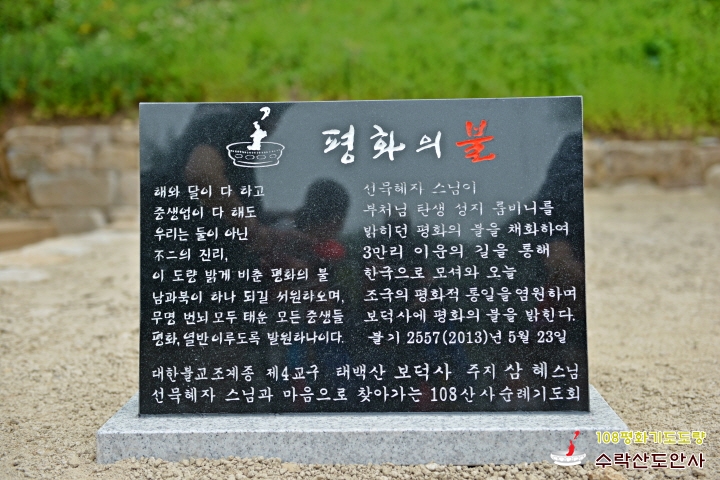 평화의 불
해와 달이 다 하고
중생업이 다 해도
우리는 둘이 아닌
不二의 진리,
이 도량 밝게 비춘 평화의 불
남과북이 하나 되길 서원하오며,
무명 번뇌 모두 태운 모든 중생들
평화, 열반이루도록 발원하나이다.
선묵혜자 스님이
부처님 탄생 성지 룸비니를
밝히던 평화의 불을 채화하여
3만리 이운의 길을 통해
한국으로 모셔와 오늘
조국의 평화적 통일을염원하며
보덕사에 평화의 불을 밝힌다.
불기 2557(2013)년 5월 23일
대한불교조계종 제4교구 태백산 보덕사 주지 삼 혜스님
선묵혜자 스님과 마음으로 찾아가는 108산사순례기도회
108평화기도도량
수락산도안사